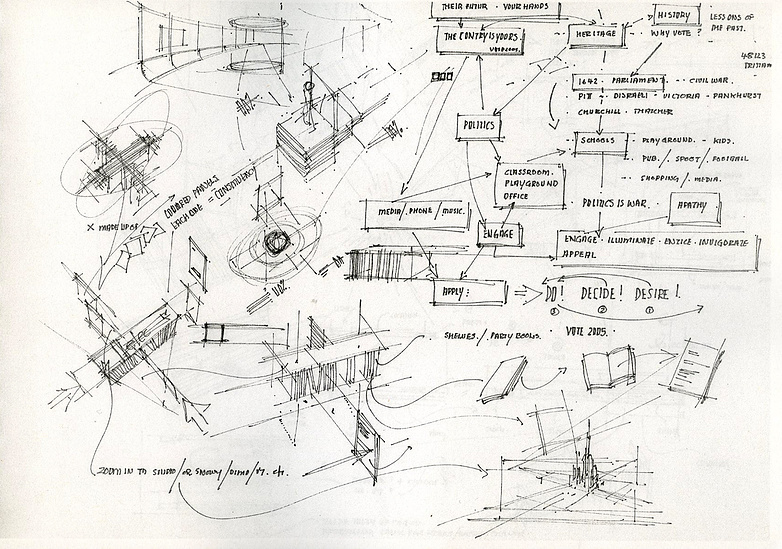 THEIR FUTUR · YOUR HANDS
THE CONTRY IS YOURS.
HERITAGE
HISTORY
LESSONS OF
THE PAST.
WHY VOTE?
1642 · PARLIAMENT · CIVIL WAR.
PITT · DISRAELI · VICTORIA · PANKHURST
CHURCHILL · THATCHER
POLITICS
SCHOOLS
PLAYGROUND. - KIDS.
PUB. / SPORT / FOOTBALL
SHOPPING / MEDIA.
CLASSROOM.
PLAYGROUND
OFFICE
POLITICS IS WAR.
APATHY
MEDIA / PHONE / MUSIC.
ENGAGE
ENGAGE · ILLUMINATE · ENTICE · INVIGORATE
APPEAL
APPLY:
DO! DECIDE! DESIRE!.
③ ② ①
VOTE 2005.
SHELVES. / PARTY BOOKS.
COLORED PANELS
EACH ONE = CONSTITUENCY
X MADE UP OF
ZOOM IN TO STUDIO / OR